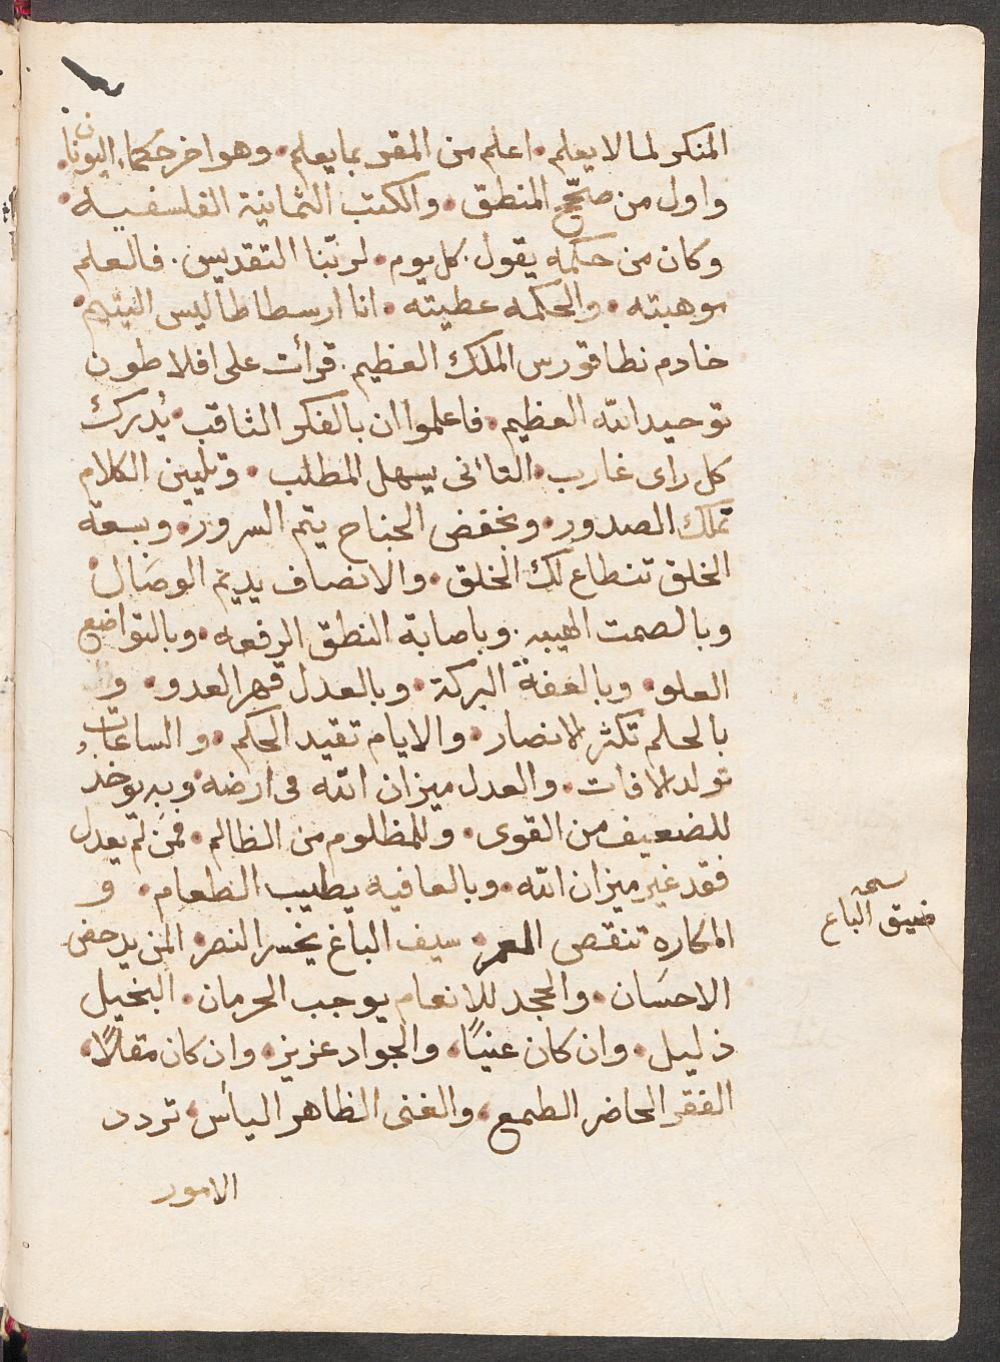 المنكر لما لا يعلم. اعلم من المقر بما يعلم. وهو اخر حكماء اليونان.
واول من صحّح المنطق. والكتب الثمانية الفلسفيه.
وكان من حكمه يقول. كل يوم. لربّنا التقديس. فالعلم
موهبته. والحكمه عطيته. انا ارسطاطاليس اليتيم.
خادم نطافورس الملك العظيم. قرأت على افلاطون
توحيد الله العظيم. فاعلموا ان بالفكر الثاقب يُدرك
كل راى غارب. التاانى يسهل المطلب. وتليين الكلام
تملك الصدور. وبخفض الجناح يتم السرور. وبسعة
الخلق تنطاع لك الخلق. والانصاف يديم الوصَال.
وبالصمت الهيبه. وباصابة النطق الرفعه. وبالتواضع
العلو. وبالعفة البركة. وبالعدل قهر العدو. و
بالحلم تكثر الانصار. والايام تفيد الحكم. والساعات
تولد الافات. والعدل ميزان الله فى ارضه. وبه يوخذ
للضعيف من القوى. وللمظلوم من الظالم. فمن لم يعدل
فقد غير ميزان الله. وبالعافيه يطيب الطعام. و
المكاره تنقص العمر. سيف الباغ يخسر النصر. المن يدحض
نسخه
ضيق الباع
الاحسَان. والجحد للانعام يوجب الحرمان. البخيل
ذليل. وان كان غنيًا. والجواد عزيز. وان كان مقلاً.
الفقر الحاضر الطمع. والغنى الظاهر اليأس. تردد
الامور